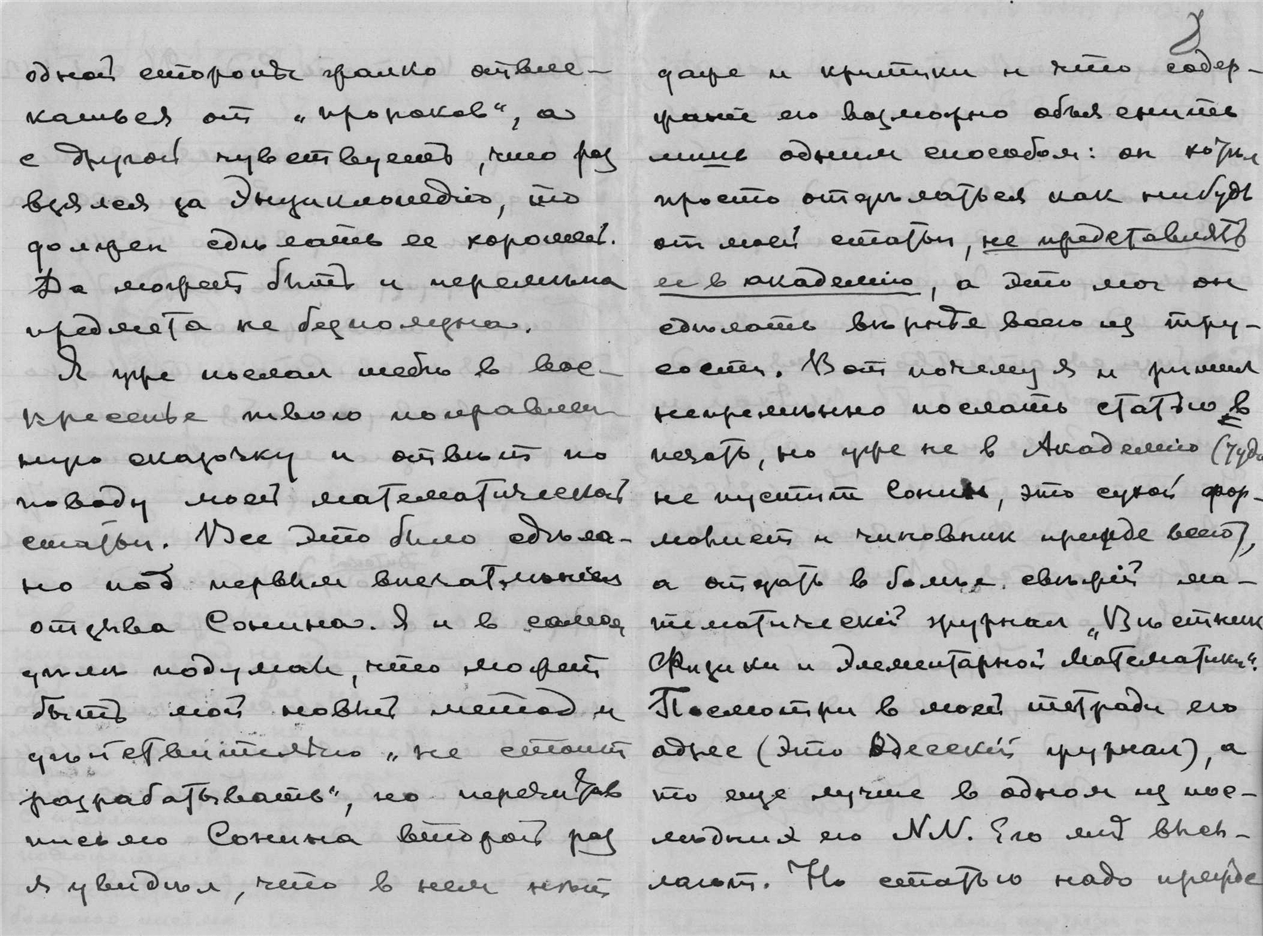 одной стороны жалко отвле-
каться от „пророков“, а
с другой чувствуешь, что раз
взялся за Энциклопедію, то
должен сдѣлать ее хорошей.
Да может быть и перемѣна
предмета не безполезна.
Я уже послал тебѣ в вос-
кресенье твою, поправлен-
ную сказочку и отвѣт по
поводу моей математической
статьи. Все это было сдѣла-
но под первым впечатлѣніем
отзыва Сонина. Я и в самом
дѣлѣ подумал, что может
быть мой новый метод и
дѣйствительно „не стоит
разрабатывать“, но перечитав
письмо Сонина второй раз
я увидѣл, что в нем нѣт
даже и критики и что содер-
жаніе его возможно объяснить
лишь одним способом: он хотѣл
просто отдѣлаться как нибудь
от моей статьи, не представлять
ее в академію, а это мог он
сдѣлать вѣрнѣе всего из тру-
сости. Вот почему я и рѣшил
непремѣнно послать статью в
печать, но уже не в Академію (туда
не пустит Сонин, это сухой фор-
малист и чиновник прежде всего),
а отдать в болѣе свѣжій ма-
тематическій журнал „Вѣстник
Физики и Элементарной Математики“.
Посмотри в моей тетради его
адрес (это Одесскій журнал), а
то еще лучше в одном из пос-
лѣдних его NN. Его мнѣ высы-
лают. Но статью надо прежде